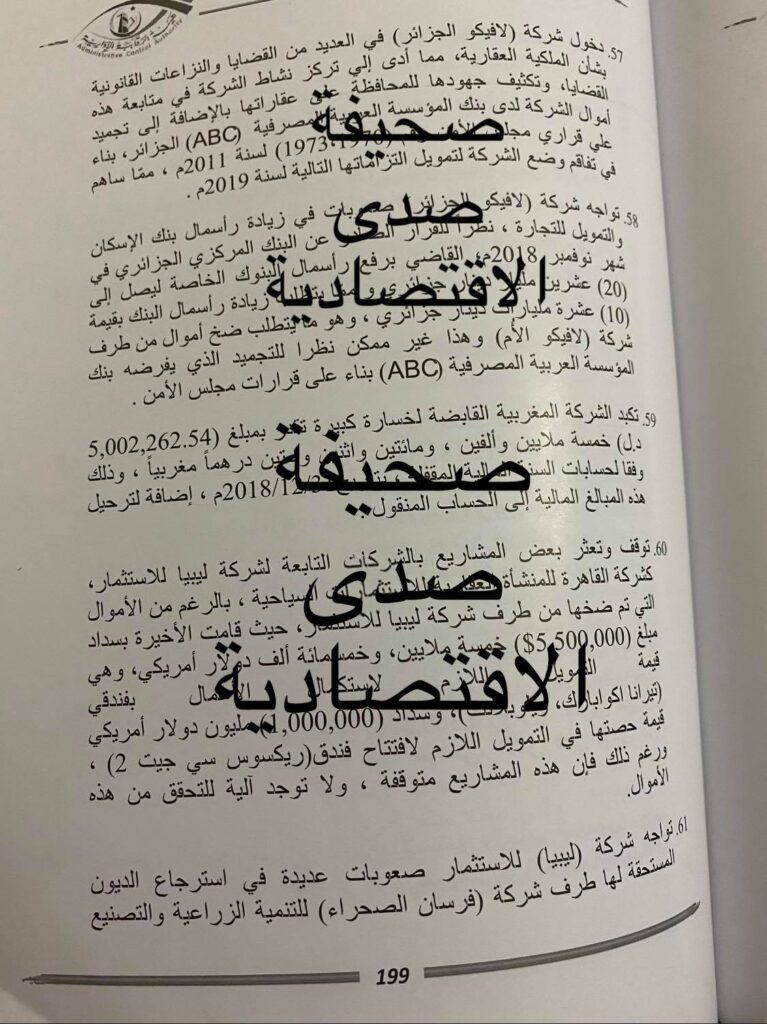 Administrative Control Authority
57. دخول شركة (لافيكو الجزائر) في العديد من القضايا والنزاعات القانونية
بشأن الملكية العقارية، مما أدى إلي تركز نشاط الشركة في متابعة هذه
القضايا، وتكثيف جهودها للمحافظة على عقاراتها بالإضافة إلى تجميد
أموال الشركة لدى بنك المؤسسة العربية المصرفية (ABC) الجزائر، بناء
علي قراري مجلس الأمن (1973،1970) لسنة 2011م ، ممّا ساهم
في تفاقم وضع الشركة لتمويل التزاماتها التالية لسنة 2019م .
58. تواجه شركة (لافيكو الجزائر) صعوبات في زيادة رأسمال بنك الإسكان
والتمويل للتجارة ، نظرا للقرار الصادر عن البنك المركزي الجزائري في
شهر نوفمبر 2018م، القاضي برفع رأسمال البنوك الخاصة ليصل إلى
(20) عشرين مليار دينار جزائري و يتطلب زيادة رأسمال البنك بقيمة
(10) عشرة مليارات دينار جزائري ، وهو ما يتطلب ضخ أموال من طرف
شركة (لافيكو الأم) وهذا غير ممكن نظرا للتجميد الذي يفرضه بنك
المؤسسة العربية المصرفية (ABC) بناء على قرارات مجلس الأمن .
59. تكبد الشركة المغربية القابضة لخسارة كبيرة بمبلغ (5,002,262.54
د.ل) خمسة ملايين وألفين ، ومائتين واثنين وستين درهماً مغربياً ، وذلك
وفقا لحسابات السنة المالية المقفلة 2018/12/م ، إضافة لترحيل
هذه المبالغ المالية إلى الحساب المنقول
60. توقف وتعثر بعض المشاريع بالشركات التابعة لشركة ليبيا للاستثمار،
كشركة القاهرة للمنشأة العقارية للاستثمارات السياحية ، بالرغم من الأموال
التي تم ضخها من طرف شركة ليبيا للاستثمار، حيث قامت الأخيرة بسداد
مبلغ (5,500,000$) خمسة ملايين، وخمسمائة ألف دولار أمريكي، وهي
قيمة التمويل اللازم لاستكمال الأعمال بفندقي
(تيرانا اكوابارك، )، وسداد (1,000,000) مليون دولار أمريكي
قيمة حصتها في التمويل اللازم لافتتاح فندق(ريكسوس سي جيت 2) ،
ورغم ذلك فإن هذه المشاريع متوقفة ، ولا توجد آلية للتحقق من هذه
الأموال.
61. تواجه شركة (ليبيا) للاستثمار صعوبات عديدة في استرجاع الديون
المستحقة لها طرف شركة (فرسان الصحراء) للتنمية الزراعية والتصنيع
199
صحيفة
صدى
الاقتصادية
صحيفة
صدى
الاقتصادية